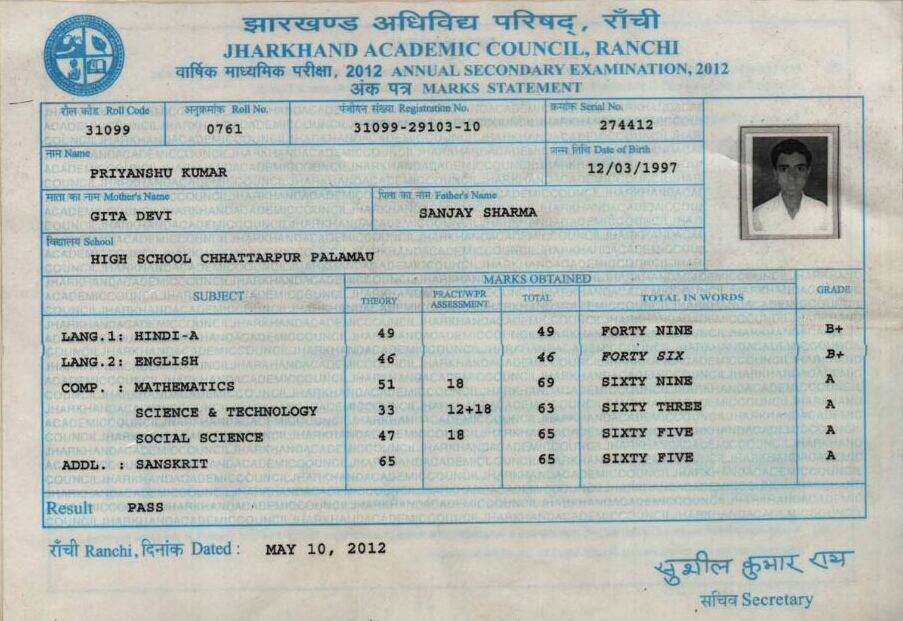 झारखण्ड अधिविद्य परिषद्, राँची
JHARKHAND ACADEMIC COUNCIL, RANCHI
वार्षिक माध्यमिक परीक्षा, 2012 ANNUAL SECONDARY EXAMINATION, 2012
अंक पत्र MARKS STATEMENT
रौल कोड Roll Code अनुक्रमांक Roll No. पंजीयन संख्या Registration No. क्रमांक Serial No.
31099 0761 31099-29103-10 274412
नाम Name जन्म तिथि Date of Birth
PRIYANSHU KUMAR 12/03/1997
माता का नाम Mother's Name पिता का नाम Father's Name
GITA DEVI SANJAY SHARMA
विद्यालय School
HIGH SCHOOL CHHATTARPUR PALAMAU
SUBJECT MARKS OBTAINED GRADE
THEORY PRACT/WPR ASSESSMENT TOTAL TOTAL IN WORDS
LANG.1: HINDI-A 49 49 FORTY NINE B+
LANG.2: ENGLISH 46 46 FORTY SIX B+
COMP. : MATHEMATICS 51 18 69 SIXTY NINE A
SCIENCE & TECHNOLOGY 33 12+18 63 SIXTY THREE A
SOCIAL SCIENCE 47 18 65 SIXTY FIVE A
ADDL. : SANSKRIT 65 65 SIXTY FIVE A
Result PASS
राँची Ranchi, दिनांक Dated : MAY 10, 2012
सुशील कुमार राय
सचिव Secretary